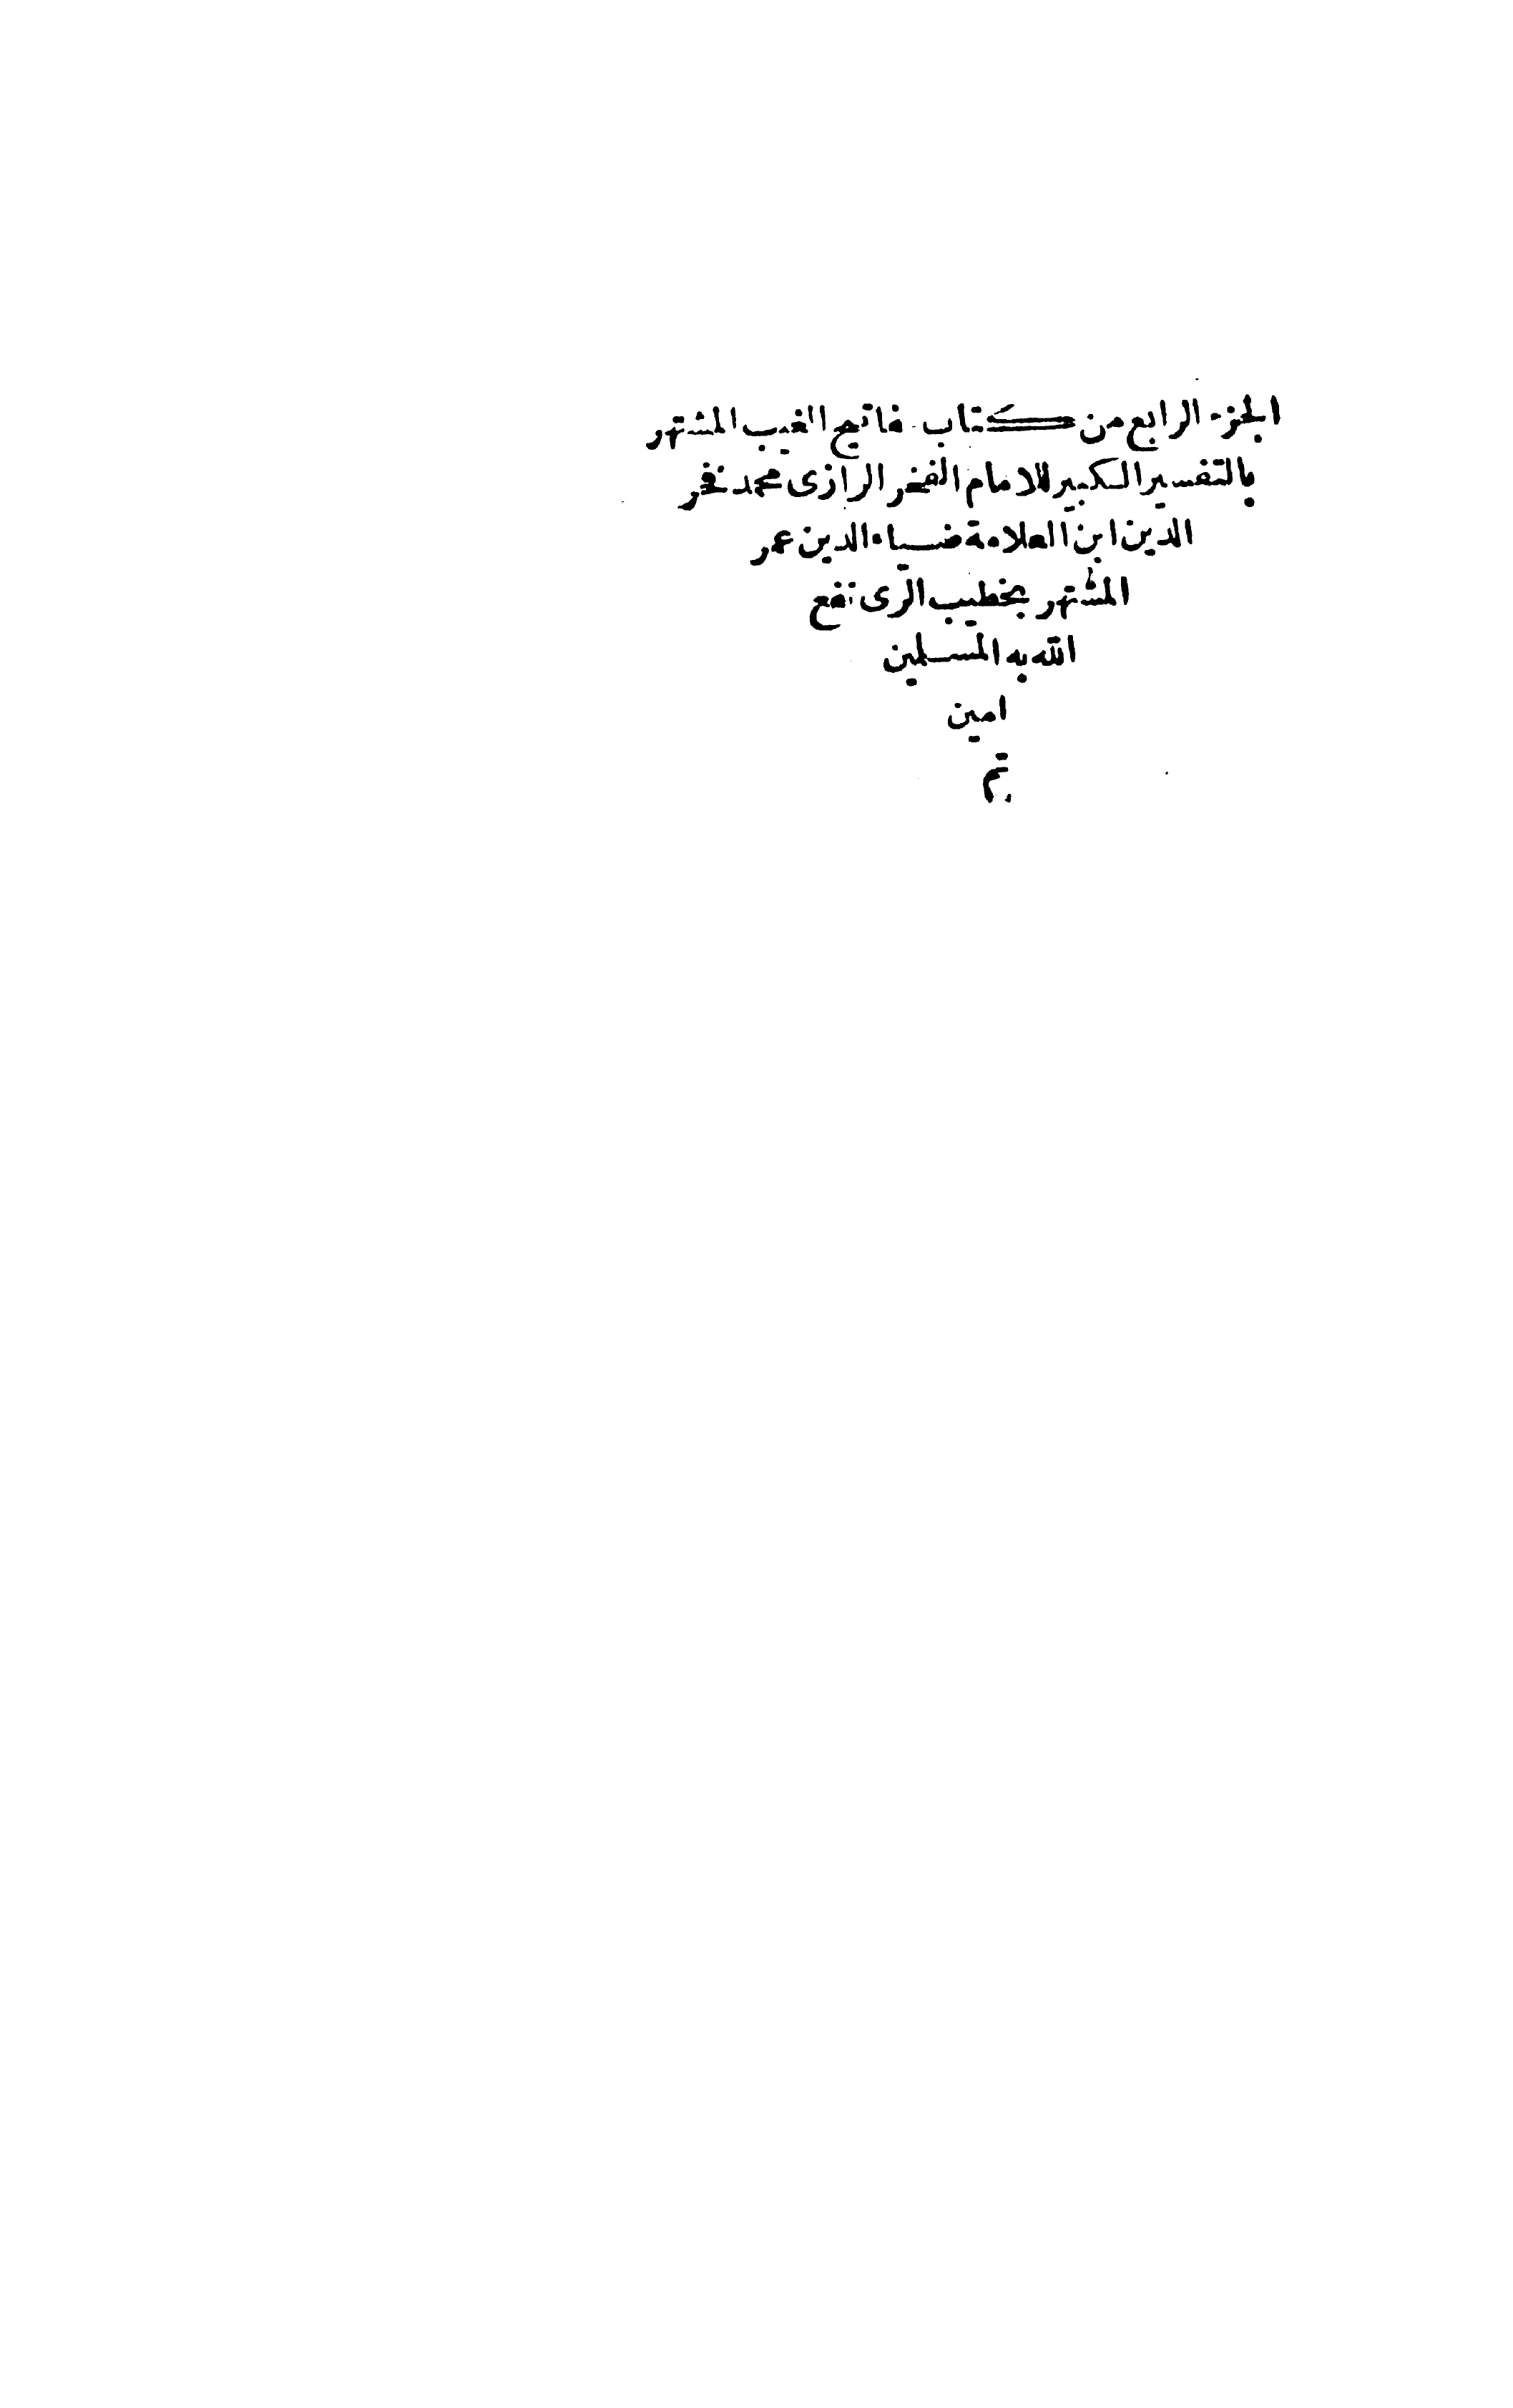 الجزء الرابع من كتاب مفاتيح الغيب المشتهر
بالتفسير الكبير للامام الفخر الرازى محمد فخر
الدين ابن العلامة ضياء الدين عمر
المشتهر بخطيب الرى نفع
الله به المسلمين
امين
تم